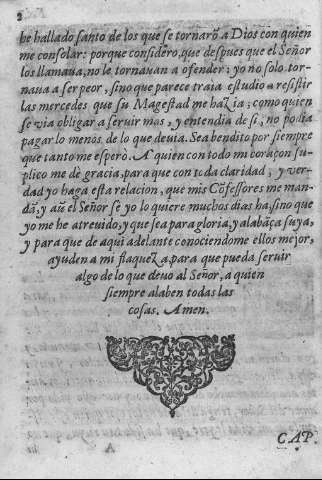 2
he hallado santo de los que se tornarõ a Dios con quien
me consolar: porque considero, que despues que el Señor
los llamaua, no le tornauan a ofender; yo no solo tor-
naua a ser peor, sino que parece traia estudio a resistir
las mercedes que su Magestad me hazia; como quien
se via obligar a seruir mas, y entendia de si, no podia
pagar lo menos de lo que deuia. Sea bendito por siempre
que tanto me espero. A quien con todo mi coraçon su-
plico me de gracia, para que con toda claridad, y ver-
dad yo haga esta relacion, que mis Cõfessores me man-
dã, y aũ el Señor se yo lo quiere muchos dias ha, sino que
yo me he atreuido, y que sea para gloria, y alabãça suya,
y para que de aqui adelante conociendome ellos mejor,
ayuden a mi flaqueza, para que pueda seruir
algo de lo que deuo al Señor, a quien
siempre alaben todas las
cosas. Amen.
CAP.